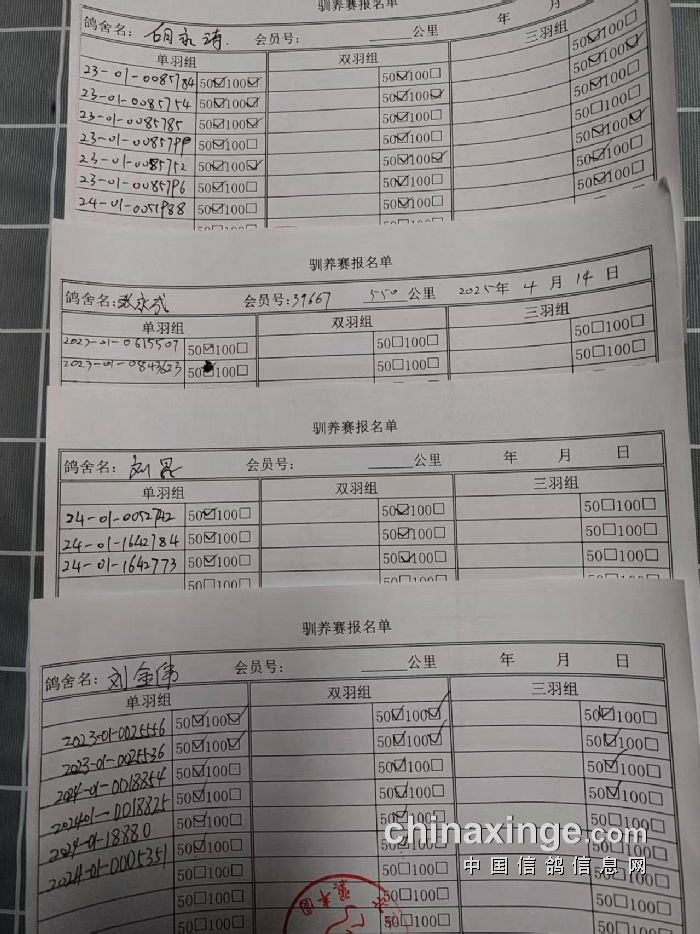 驯养赛报名单
鸽舍名： 会员号： 公里 年 月
单羽组 双羽组 三羽组
23-01-0085784 50☑100☑ 50☑100☐ 50☑100☑
23-01-0085754 50☑100☑ 50☑100☑ 50☑100☐
23-01-0085785 50☑100☑ 50☑100☑ 50☑100☑
50☑100☐ 50☑100☐ 50☐100☐
23-01-0085752 50☑100☑ 50☑100☑ 50☑100☑
23-01-0085796 50☑100☐ 50☑100☐ 50☑100☐
24-01-0051988 50☑100☐ 50☑100☐ 50☑100☐
驯养赛报名单
鸽舍名： 会员号：39667 550 公里 2025年 4 月 14 日
单羽组 双羽组 三羽组
2023-01-0615507 50☑100☐ 50☐100☐ 50☐100☐
2023-01-0843623 50 100☐ 50☐100☐ 50☐100☐
驯养赛报名单
鸽舍名：刘昆 会员号： 公里 年 月 日
单羽组 双羽组 三羽组
24-01-0052742 50☑100☐ 50☑100☐ 50☐100☐
24-01-1642784 50☑100☐ 50☑100☐ 50☐100☐
24-01-1642773 50☑100☐ 50☑100☐ 50☐100☐
驯养赛报名单
鸽舍名：刘金伟 会员号： 公里 年 月 日
单羽组 双羽组 三羽组
2023-01-0025556 50☑100☑ 50☑100☑ 50☑100☐
2023-01-0025536 50☑100☑ 50☑100☑ 50☑100☐
2024-01-0018854 50☑100☐ 50☑100☐ 50☑100☐
202401-0018825 50☑100☐ 50☑100☐ 50☑100☐
2024-01-18880 50☑100☐ 50☑100
2024-01-0005351 50☑100☐ 50☑100☐
50☐100☐ 50☐100☐ 50☐100☐
50☐100☐ 50☐100☐ 50☐100☐
50☐100☐ 50☐100☐ 50☐100☐
chinaxinge.com
中国信鸽信息网